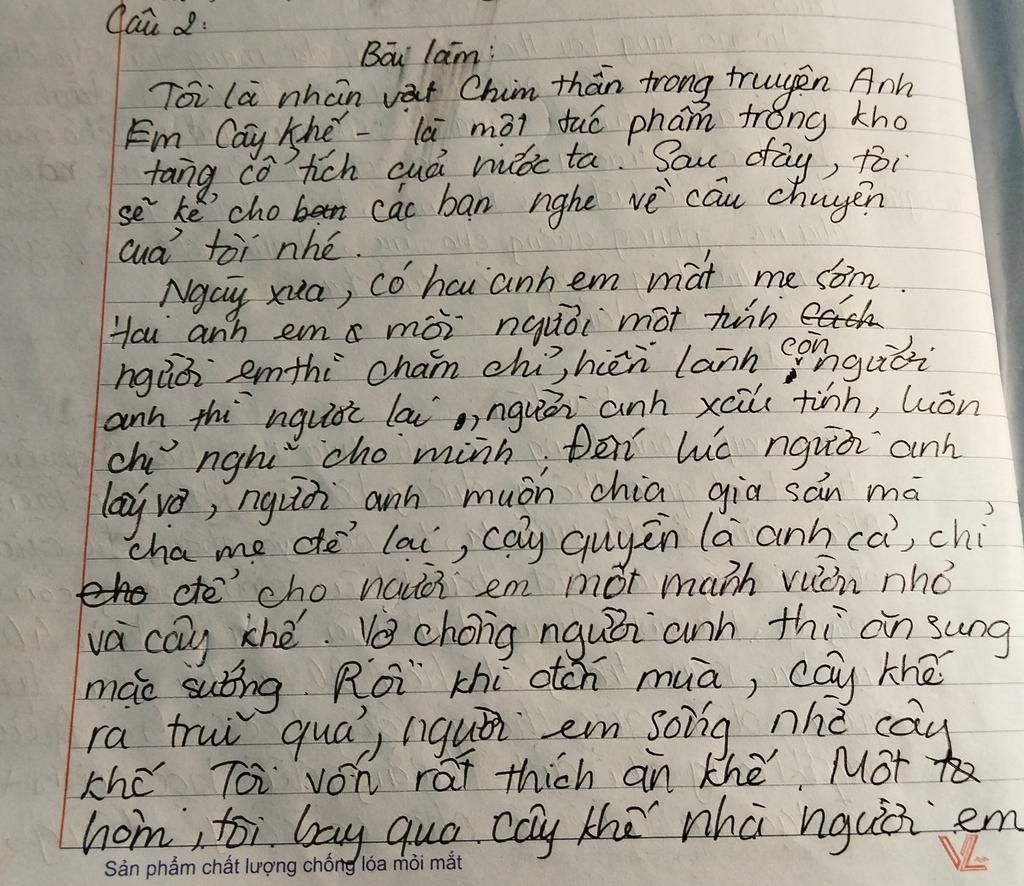 Câu 2:
Bài làm:
Tôi là nhân vật Chim thần trong truyện Anh
Em Cây Khế - là một túc phẩm trong kho
tàng cổ tích cuả nước ta. Sau đây, tôi
sẽ kể cho bạn các bạn nghe về câu chuyện
cuả tôi nhé.
Ngày xưa, có hai anh em mất mẹ sớm.
Hai anh em mỗi người một tính cách
người em thì chăm chỉ, hiền lành còn người
anh thì ngược lại, người anh xấu tính, luôn
chỉ nghĩ cho mình. Đến lúc người anh
lấy vợ, người anh muốn chia gia sản mà
cha mẹ để lại, cậy quyền là anh cả, chỉ
cho để cho người em một mảnh vườn nhỏ
và cây khế. Vợ chồng người anh thì ăn sung
mặc sướng. Rồi khi đến mùa, cây khế
ra trũi quả, người em sống nhờ cây
khế. Tôi vốn rất thích ăn khế. Một
hôm, tôi bay qua cây khế nhà người em
Sản phẩm chất lượng chống lóa mỏi mắt
VL